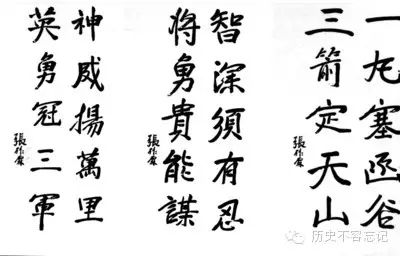 一丸塞函谷
三箭定天山
張作霖
智深須有忍
将勇貴能謀
張作霖
神威揚萬里
英勇冠三軍
張作霖
历史不容忘记